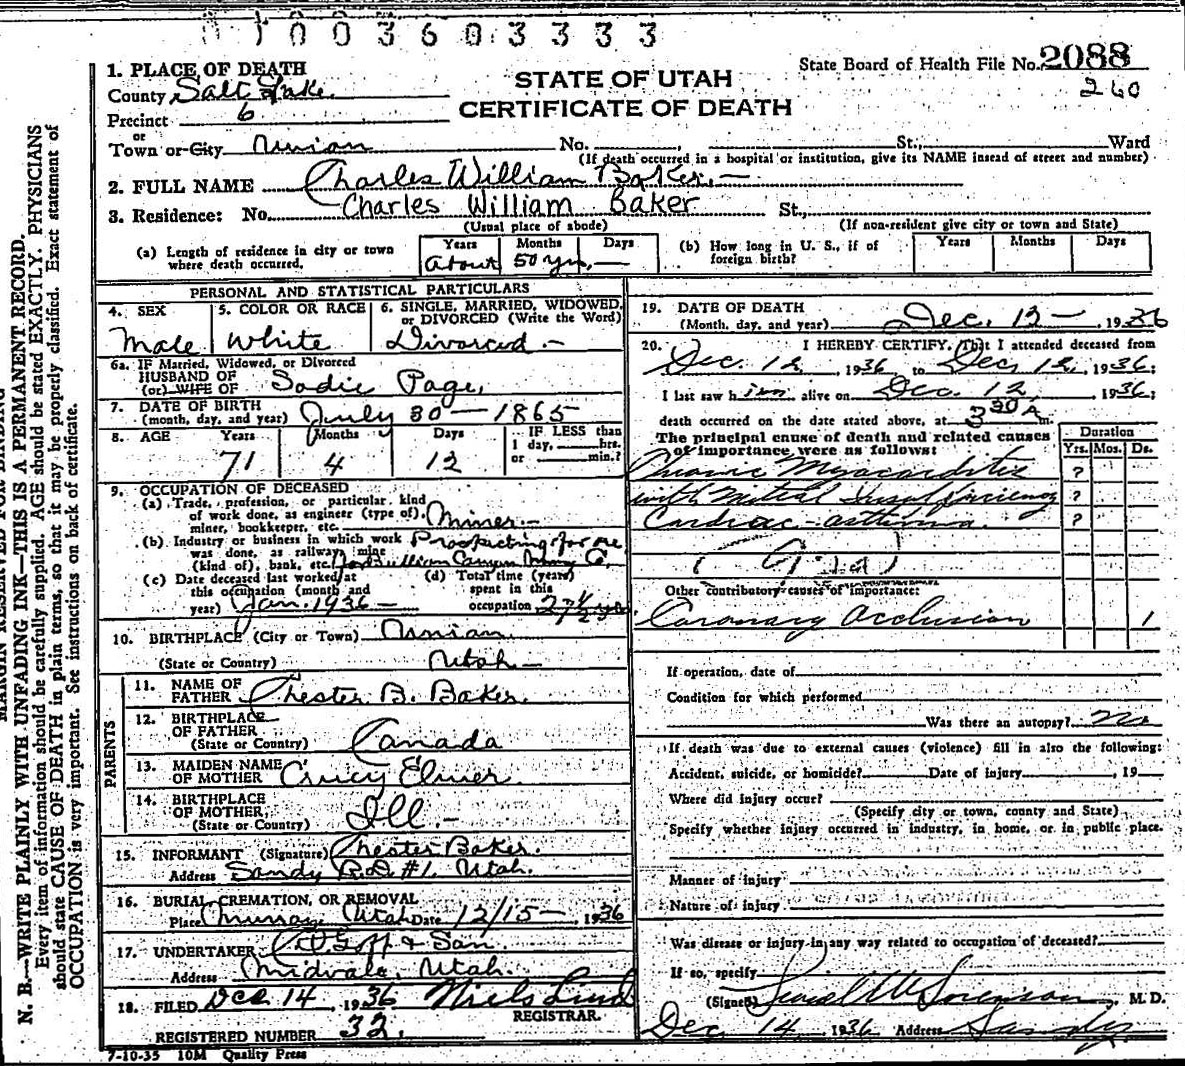 01003603333
State Board of Health File No. 2088
260
STATE OF UTAH
CERTIFICATE OF DEATH
1. PLACE OF DEATH
County Salt Lake
Precinct 6
or
Town or City Union No. , St., Ward
(If death occurred in a hospital or institution, give its NAME instead of street and number)
2. FULL NAME Charles William Baker.—
3. Residence: No. Charles William Baker St.,
(Usual place of abode) (If non-resident give city or town and State)
(a) Length of residence in city or town where death occurred.
Years Months Days
about 50 yrs.—
(b) How long in U. S., if of foreign birth?
Years Months Days
PERSONAL AND STATISTICAL PARTICULARS
4. SEX 5. COLOR OR RACE 6. SINGLE, MARRIED, WIDOWED, or DIVORCED (Write the Word)
Male White Divorced —
6a. IF Married, Widowed, or Divorced
HUSBAND OF
(or) WIFE OF Sadie Page.
7. DATE OF BIRTH
(month, day, and year) July 30 — 1865
8. AGE Years Months Days IF LESS than
1 day, hrs.
or min.?
71 4 12
9. OCCUPATION OF DECEASED
(a) Trade, profession, or particular kind
of work done, as engineer (type of),
miner, bookkeeper, etc. Miner.—
(b) Industry or business in which work Prospecting for ore
was done, as railway, mine
(kind of), bank, etc. Canyon Mining Co.
(c) Date deceased last worked at
this occupation (month and
year) Jan. 1936—
(d) Total time (years)
spent in this
occupation 27 1/2 yrs.
10. BIRTHPLACE (City or Town) Union
(State or Country) Utah —
PARENTS
11. NAME OF
FATHER Chester B. Baker.
12. BIRTHPLACE
OF FATHER
(State or Country) Canada
13. MAIDEN NAME
OF MOTHER Elmer
14. BIRTHPLACE
OF MOTHER,
(State or Country) Ill.—
15. INFORMANT (Signature) Chester Baker.
Address Sandy R.D. #1. Utah.
16. BURIAL, CREMATION, OR REMOVAL
Place Murray, Utah Date 12/15 — 1936
17. UNDERTAKER Goff & Son
Address Midvale, Utah.
18. FILED Dec. 14, 1936 Niels Lind
REGISTRAR.
REGISTERED NUMBER 32.
7-10-35 10M Quality Press
19. DATE OF DEATH
(Month, day, and year) Dec. 12 —, 1936
20. I HEREBY CERTIFY, That I attended deceased from
Dec. 12, 1936, to Dec. 12, 1936;
I last saw him alive on Dec. 12, 1936;
death occurred on the date stated above, at 3 30 A m.
The principal cause of death and related causes
of importance were as follows:
Duration
Yrs. Mos. Ds.
Chronic Myocarditis ?
with Mitral Insufficiency ?
Cardiac-asthma. ?
Other contributory causes of importance:
Coronary Occlusion 1
If operation, date of
Condition for which performed
Was there an autopsy? no
If death was due to external causes (violence) fill in also the following:
Accident, suicide, or homicide? Date of injury , 19
Where did injury occur?
(Specify city or town, county and State)
Specify whether injury occurred in industry, in home, or in public place.
Manner of injury
Nature of injury
Was disease or injury in any way related to occupation of deceased?
If so, specify
(Signed) Sorenson, M. D.
Dec 14 1936 Address Sandy
MARGIN RESERVED FOR BINDING
N. B.—WRITE PLAINLY WITH UNFADING INK—THIS IS A PERMANENT RECORD.
Every item of information should be carefully supplied. AGE should be stated EXACTLY. PHYSICIANS
should state CAUSE OF DEATH in plain terms, so that it may be properly classified. Exact statement of
OCCUPATION is very important. See instructions on back of certificate.